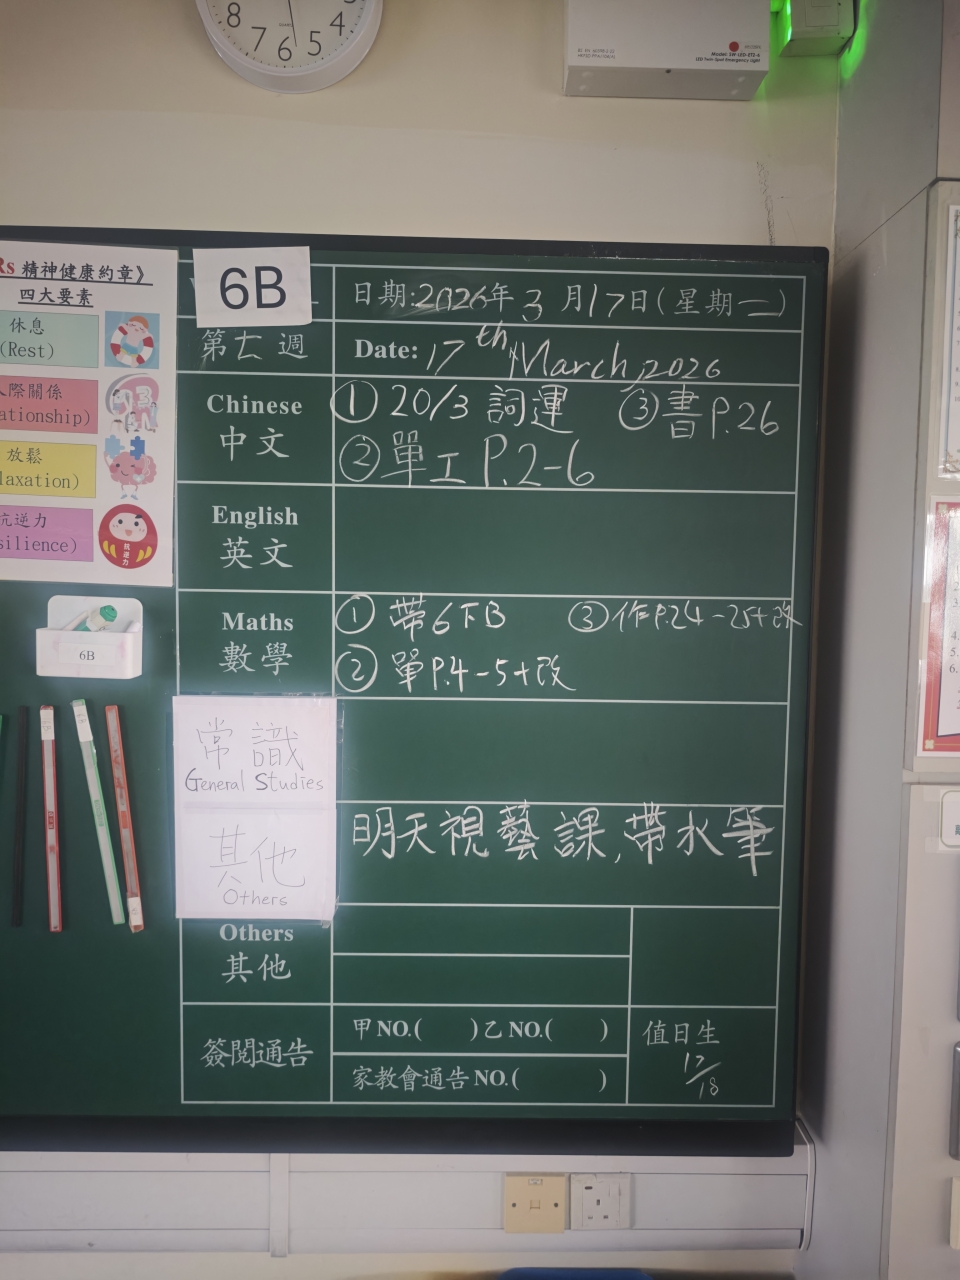 8 7 6 5 4
Rs 精神健康約章》
四大要素
休息
(Rest)
人際關係
ationship)
放鬆
laxation)
抗逆力
silience)
抗逆力
6B
6B
日期:2026年3月17日(星期二)
第七週
Date: 17th March, 2026
Chinese
中文
① 20/3 詞運 ③書P.26
②單工P.2-6
English
英文
Maths
數學
① 帶6下B ③作P.24-25+改
② 單P.4-5+改
常識
General Studies
其他
Others
明天視藝課,帶水筆
Others
其他
簽閱通告
甲NO.( )乙NO.( )
家教會通告NO.( )
值日生
17/18